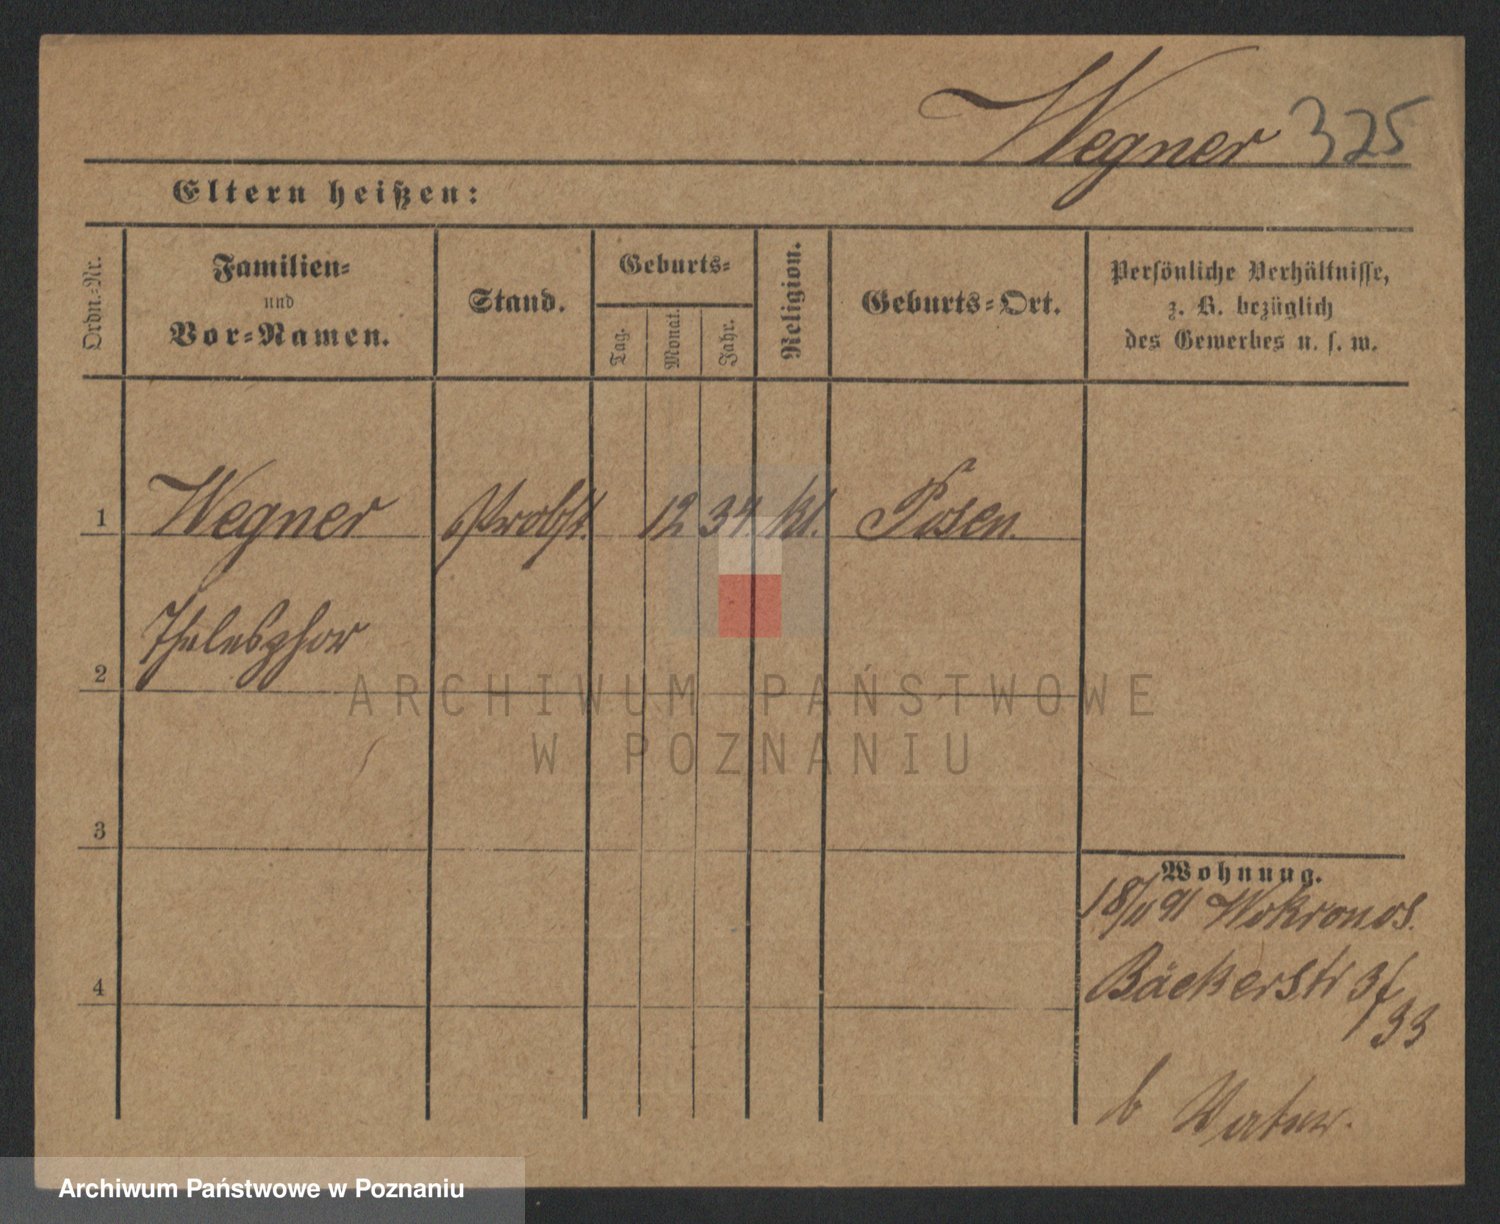 Wegner 325
Eltern heißen:
Ordn.-Nr.
Familien-
und
Vor-Namen.
Stand.
Geburts-
Tag.
Monat.
Jahr.
Religion.
Geburts-Ort.
Persönliche Verhältnisse,
z. B. bezüglich
des Gewerbes u. s. w.
1 Wegner Probst. 12 34. kt. Posen.
Thelesphor
2
ARCHIWUM PAŃSTWOWE
W POZNANIU
3
Wohnung.
18/11 91 Wokronos.
Bäckerstr 3/
33
4
b Vater.
Archiwum Państwowe w Poznaniu